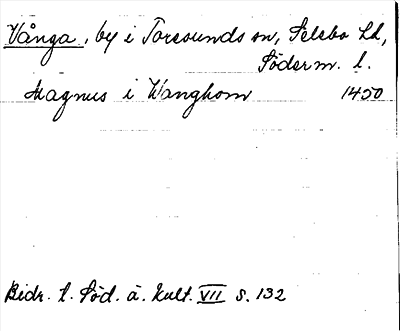 Vånga, by i Toresunds sn, Selebo hd,
Söderm. l.
Magnus i Wanghom 1450
Bidr. t. Söd. ä. Kult. VII s. 132